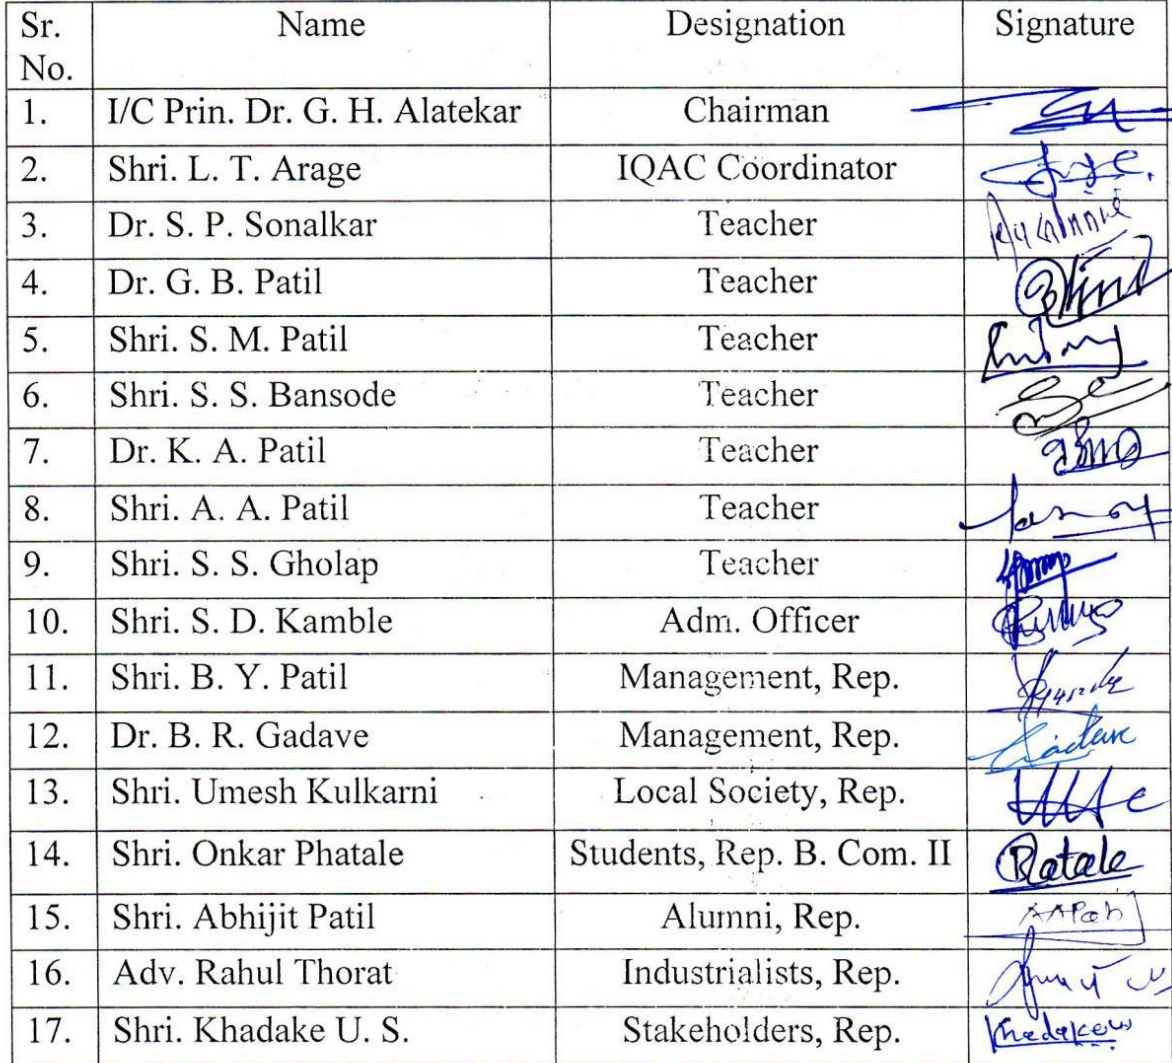 Sr. No. Name Designation Signature
1. I/C Prin. Dr. G. H. Alatekar Chairman
2. Shri. L. T. Arage IQAC Coordinator
3. Dr. S. P. Sonalkar Teacher
4. Dr. G. B. Patil Teacher
5. Shri. S. M. Patil Teacher
6. Shri. S. S. Bansode Teacher
7. Dr. K. A. Patil Teacher
8. Shri. A. A. Patil Teacher
9. Shri. S. S. Gholap Teacher
10. Shri. S. D. Kamble Adm. Officer
11. Shri. B. Y. Patil Management, Rep.
12. Dr. B. R. Gadave Management, Rep.
13. Shri. Umesh Kulkarni Local Society, Rep.
14. Shri. Onkar Phatale Students, Rep. B. Com. II
15. Shri. Abhijit Patil Alumni, Rep.
16. Adv. Rahul Thorat Industrialists, Rep.
17. Shri. Khadake U. S. Stakeholders, Rep.